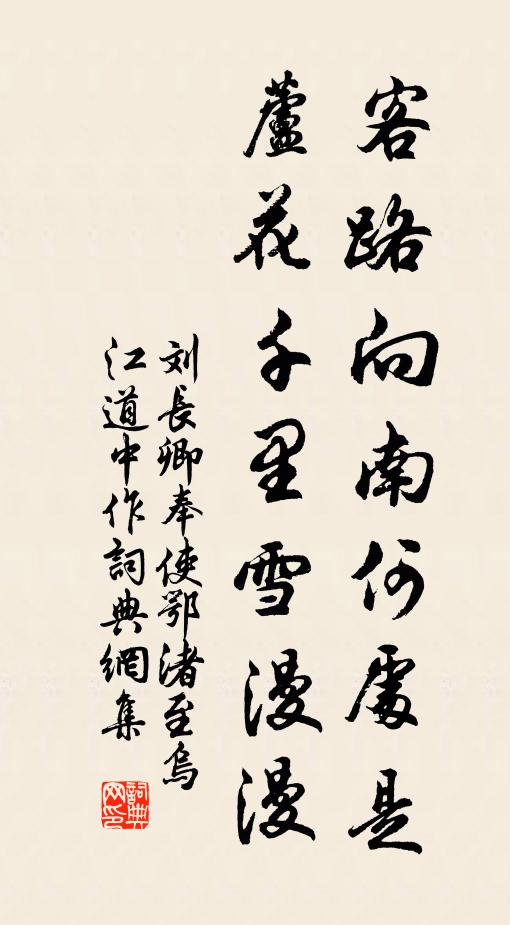 客路向南何處是
蘆花千里雪漫漫
刘長卿奉使鄂渚至烏
江道中作詞典網集
詞典
网印